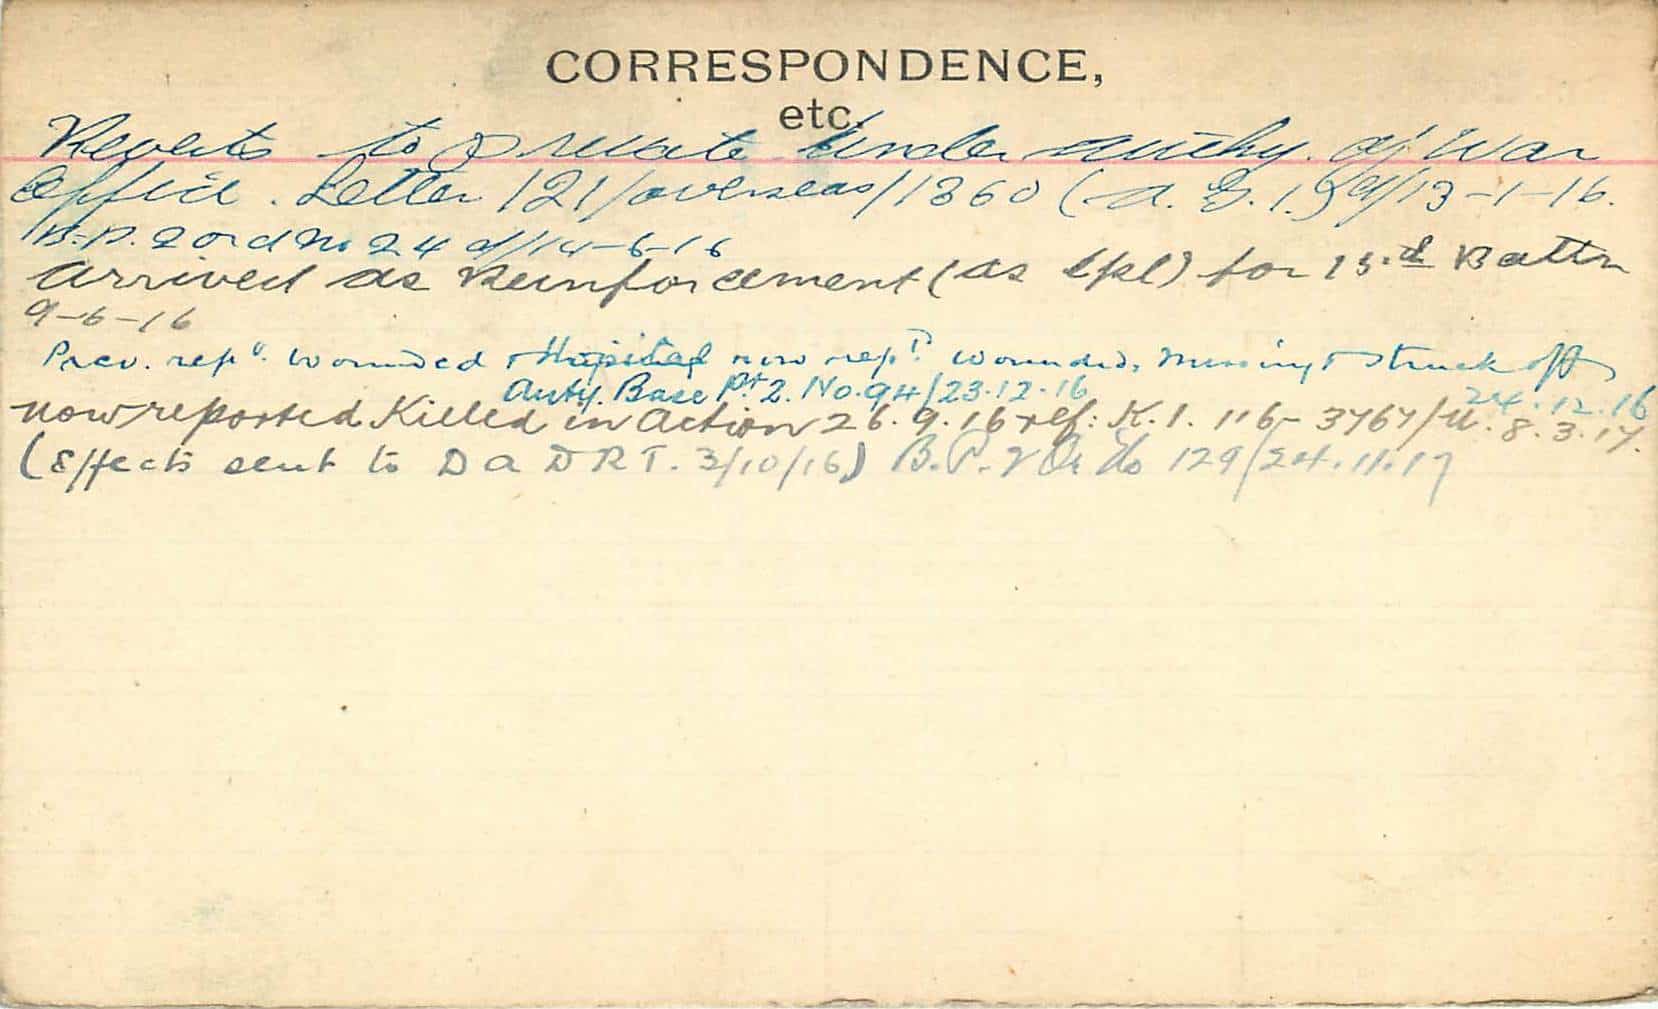 CORRESPONDENCE,
etc.
Reverts to private under authy. of War
Office. Letter 121/overseas/1360 (A. G. 1.) d/13-1-16.
B.P. 2 ord No 24 d/14-6-16
Arrived as Reinforcement (as Cpl) for 13.d Battn
9-6-16
Prev. repd. wounded & Hospital now repd wounded, missing & struck off
Auty. Base Pt 2. No. 94/23.12.16 24.12.16
now reported Killed in Action 26.9.16 ref: K.1. 116-3767/ 8.3.17.
(Effects sent to D A D R T. 3/10/16) B.P. 2 Or No 129/24.11.17